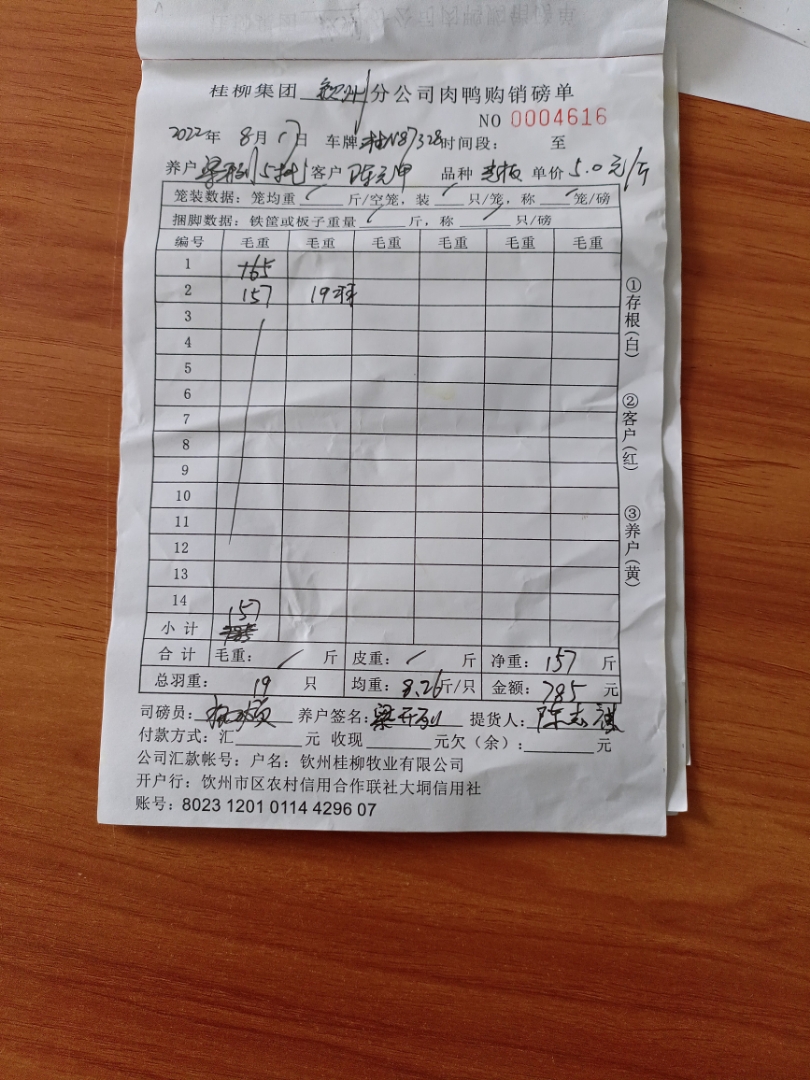 桂柳集团 钦州 分公司肉鸭购销磅单
NO 0004616
2022年 8月17日 车牌 桂N87328 时间段: 至
养户 客户 陈元甲 品种 单价 5.0元/斤
笼装数据: 笼均重 斤/空笼, 装 只/笼, 称 笼/磅
捆脚数据: 铁筐或板子重量 斤, 称 只/磅
编号 毛重 毛重 毛重 毛重 毛重 毛重
1 165
2 157 19羽
3
4
5
6
7
8
9
10
11
12
13
14
157
小 计
合 计 毛重: 斤 皮重: 斤 净重: 157 斤
总羽重: 19 只 均重: 8.26斤/只 金额: 785 元
司磅员: 养户签名: 提货人:
付款方式: 汇 元 收现 元欠(余): 元
公司汇款帐号: 户名: 钦州桂柳牧业有限公司
开户行: 饮州市区农村信用合作联社大垌信用社
账号: 8023 1201 0114 4296 07
①存根(白)
②客户(红)
③养户(黄)